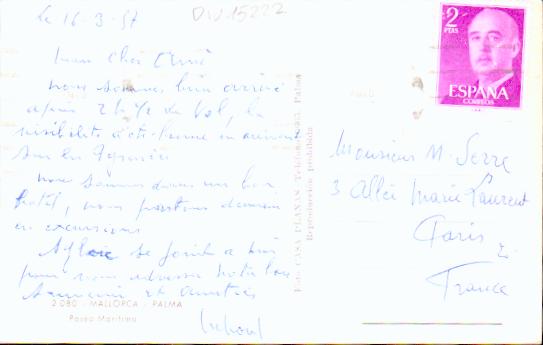 DIV15222
le 16-3-57
Mon Cher Ami
nous sommes bien arrivé
après 2h 1/2 de Vol, la
visibilité était bonne en arrivant
sur les
nous sommes dans un bon
hotel, nous partons demain
en excursions
se joint a moi
pour vous adresser notre bon
Souvenir et amitiés
2.080 - MALLORCA - PALMA
Paseo Marítimo
Foto CASA PLANAS Teléfono Palma
Reproducción prohibida
2
PTAS
ESPAÑA
CORREOS
Monsieur M. Serre
3 Allée Marie Laurent
Paris
France